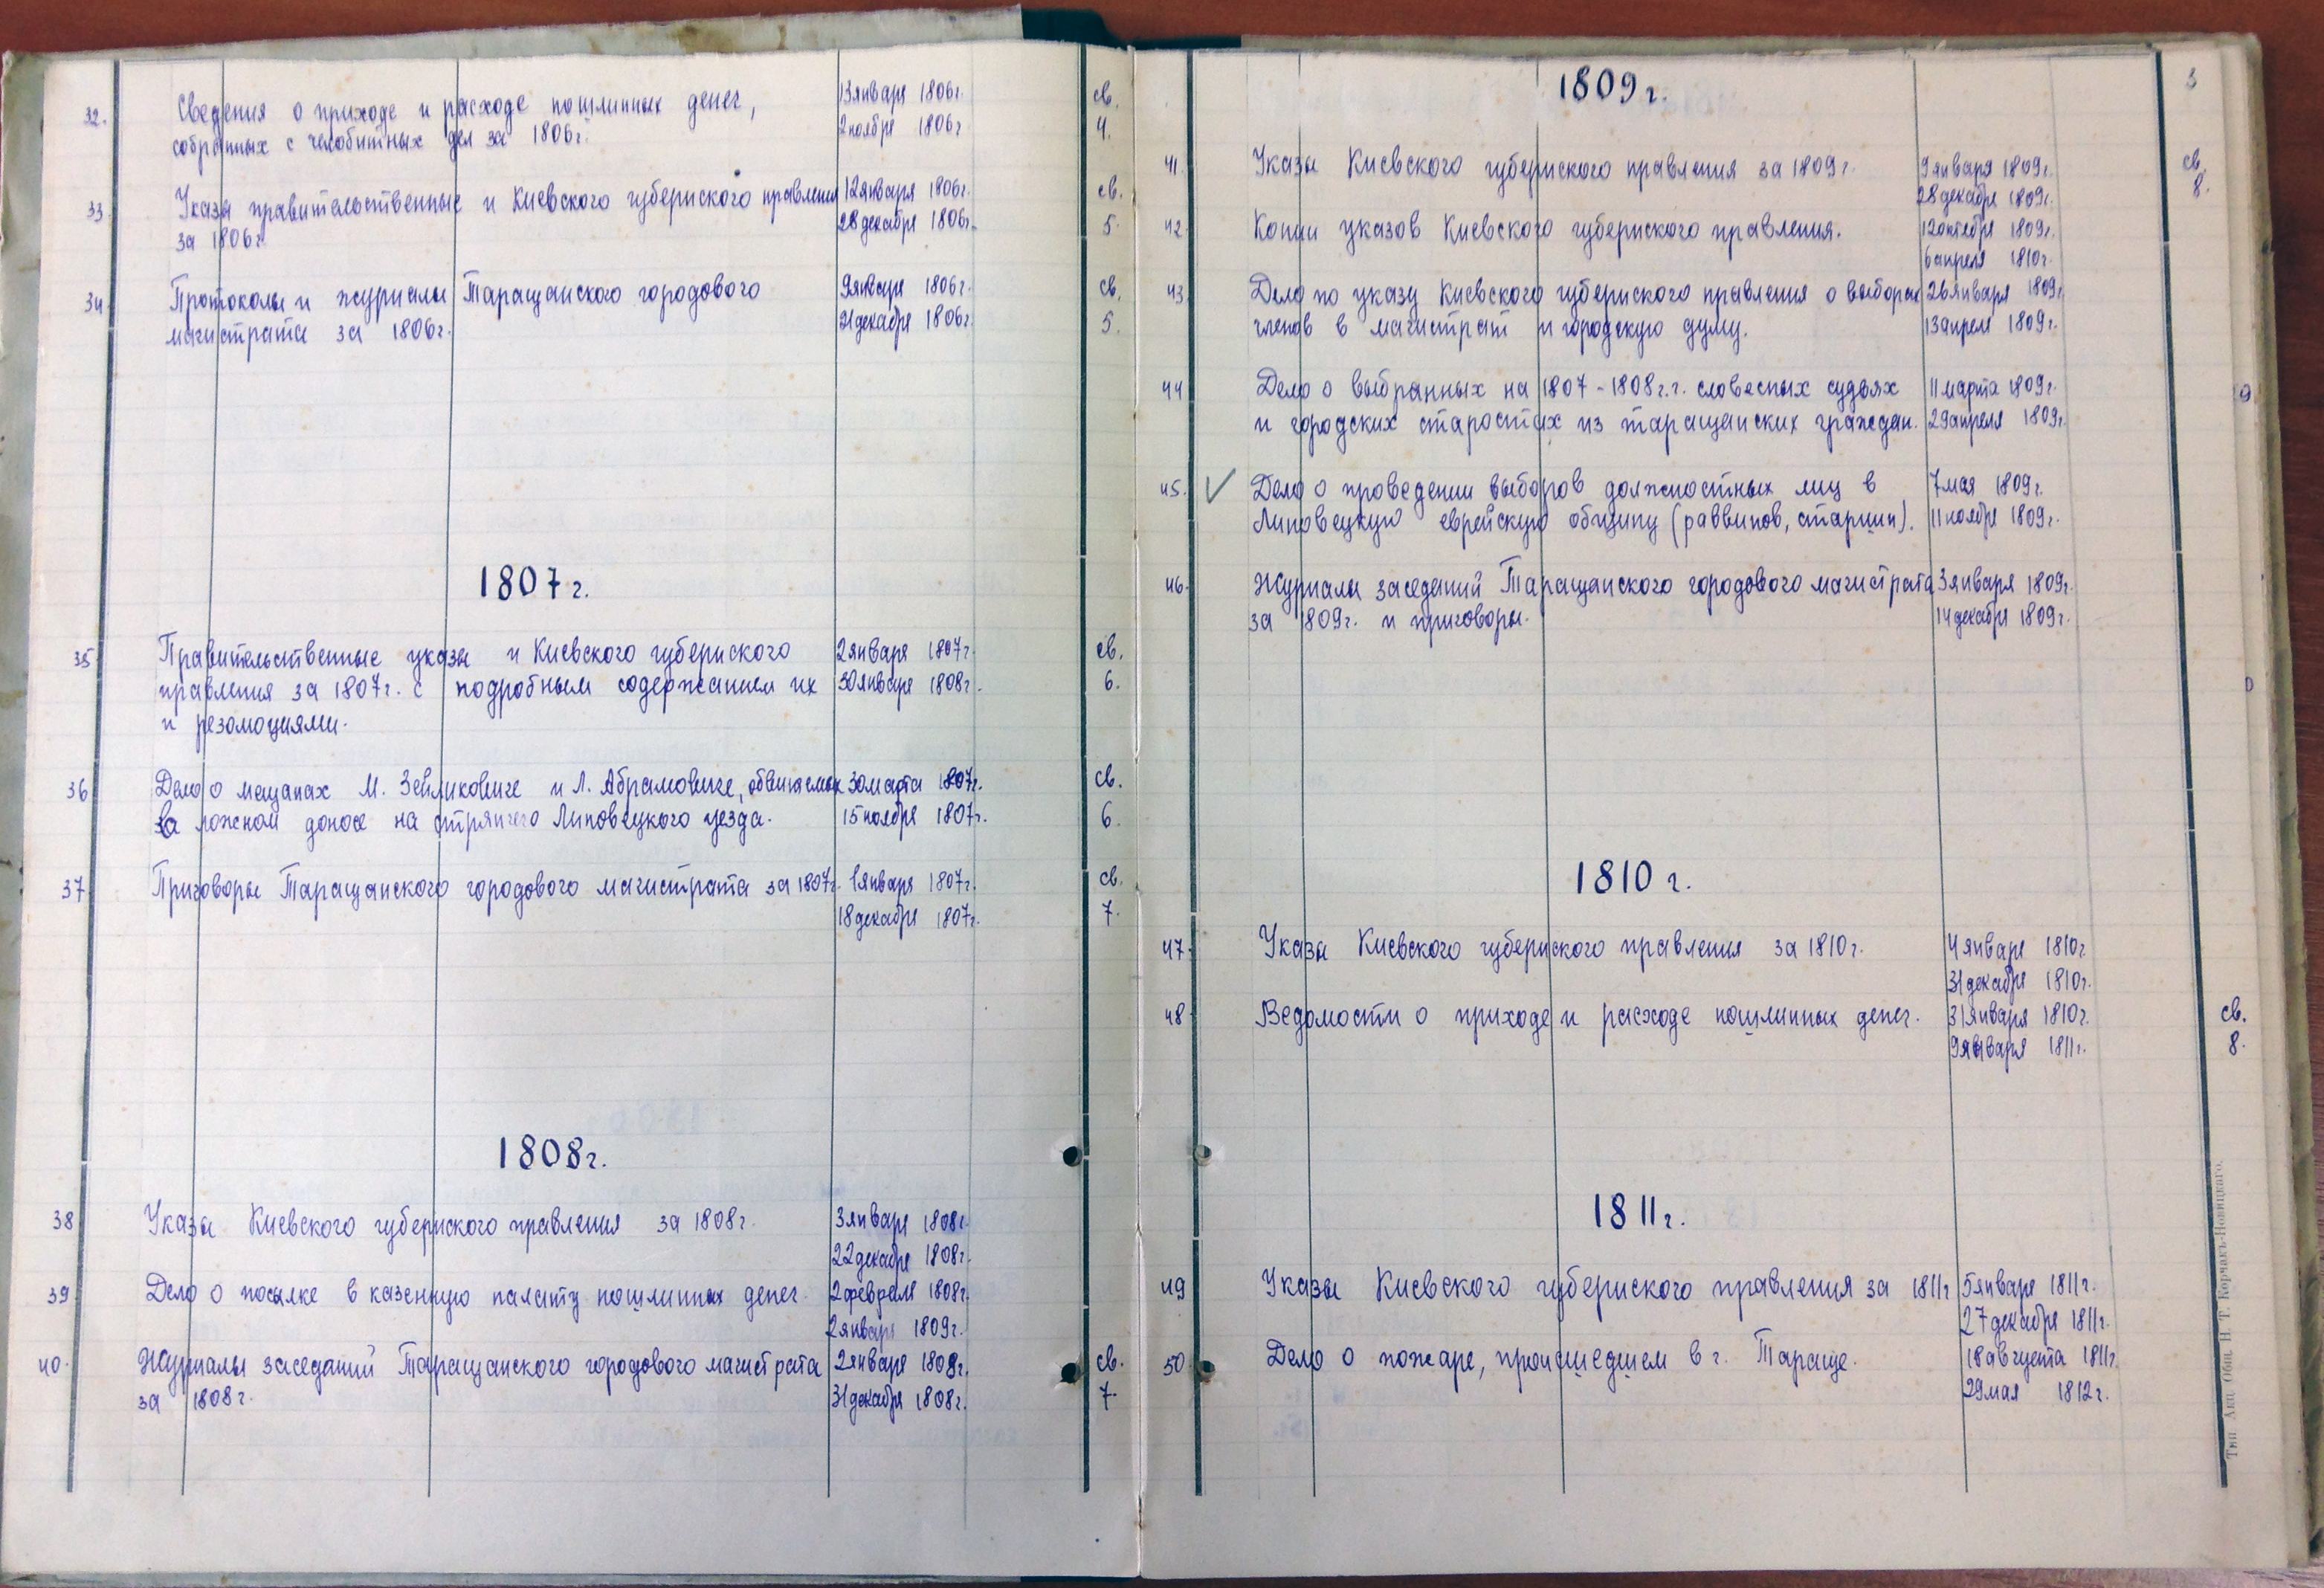 32. Сведения о приходе и расходе пошлинных денег, 13 января 1806г. св.
собранных с челобитных дел за 1806г. 2 ноября 1806г. 4.
33. Указы правительственные и Киевского губернского правления 12 января 1806г. св.
за 1806г. 28 декабря 1806г. 5.
34. Протоколы и журналы Таращанского городового 9 января 1806г. св.
магистрата за 1806г. 21 декабря 1806г. 5.
1807г.
35. Правительственные указы и Киевского губернского 2 января 1807г. св.
правления за 1807г. с подробным содержанием их 30 января 1808г. 6.
и резолюциями.
36 Дело о мещанах М. Зейликовиче и Л. Абрамовиче, обвиняемых 30 марта 1807г. св.
за ложном доносе на стряпчего Липовецкого уезда. 15 ноября 1807г. 6.
37. Приговоры Таращанского городового магистрата за 1807г. 1 января 1807г. св.
18 декабря 1807г. 7.
1808г.
38 Указы Киевского губернского правления за 1808г. 3 января 1808г.
22 декабря 1808г.
39 Дело о посылке в казенную палату пошлинных денег. 2 февраля 1808г.
2 января 1809г.
40. Журналы заседаний Таращанского городового магистрата 2 января 1808г. св.
за 1808г. 31 декабря 1808г. 7.
3
1809г.
41. Указы Киевского губернского правления за 1809г. 9 января 1809г. св.
28 декабря 1809г. 8.
42. Копии указов Киевского губернского правления. 12 октября 1809г.
6 апреля 1810г.
43 Дело по указу Киевского губернского правления о выборах 26 января 1809г.
членов в магистрат и городскую думу. 13 апреля 1809г.
44 Дело о выбранных на 1807-1808г.г. словесных судьях 11 марта 1809г.
и городских старостах из таращанских граждан. 29 апреля 1809г.
45. ✓ Дело о проведении выборов должностных лиц в 7 мая 1809г.
Липовецкую еврейскую общину (раввинов, старшин). 11 ноября 1809г.
46. Журналы заседаний Таращанского городового магистрата 3 января 1809г.
за 1809г. и приговоры. 14 декабря 1809г.
1810г.
47. Указы Киевского губернского правления за 1810г. 4 января 1810г.
31 декабря 1810г.
48 Ведомости о приходе и расходе пошлинных денег. 31 января 1810г. св.
9 января 1811г. 8.
1811г.
49 Указы Киевского губернского правления за 1811г 5 января 1811г.
27 декабря 1811г.
50. Дело о пожаре, происшедшем в г. Тараще. 18 августа 1811г.
29 мая 1812г.
Тип. Акц. Общ. Н. Т. Корчакъ-Новицкаго.